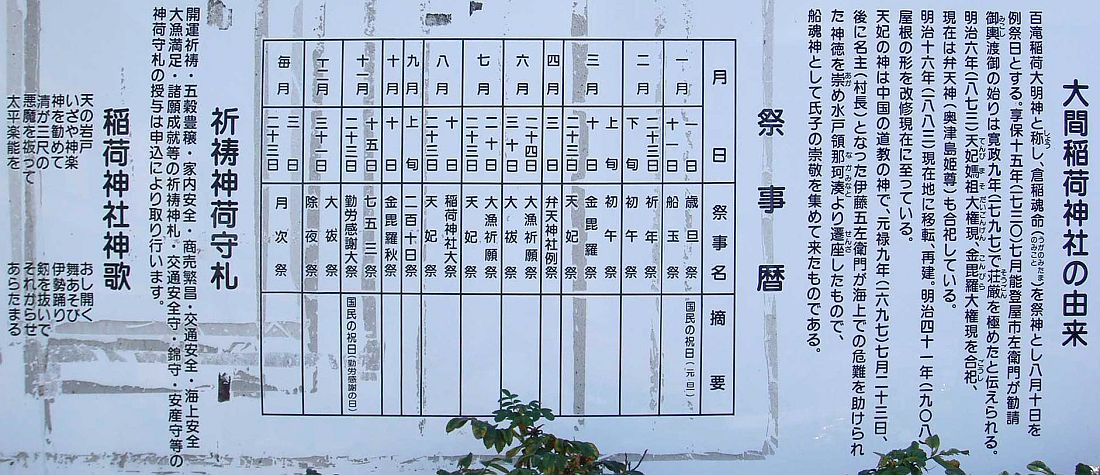 大間稲荷神社の由来
百滝稲荷大明神と称し、倉稲魂命(うがのみたまのみこと)を祭神とし八月十日を
例祭日とする。享保十五年(一七三〇)七月能登屋市左衛門が勧請
御輿渡御の始りは寛政九年(一七九七)で荘厳を極めたと伝えられる。
明治六年(一八七三)天妃媽祖大権現、金毘羅大権現を合祀、
現在は弁天神(奥津島姫尊)も合祀している。
明治十六年(一八八三)現在地に移転、再建。明治四十一年(一九〇八)
屋根の形を改修現在に至っている。
天妃の神は中国の道教の神で、元禄九年(一六九七)七月二十三日、
後に名主(村長)となった伊藤五左衛門が海上での危難を助けられ
た神徳を崇め水戸領那珂湊より遷座したもので、
船魂神として氏子の崇敬を集めて来たものである。
祭事暦
月 日 祭事名 摘要
一月 一日 歳旦祭 国民の祝日(元旦)
十一日 船玉祭
二月 下旬 祈年祭
初午 初午祭
三月 十日 金毘羅祭
二十三日 天妃祭
四月 三日 弁天神社例祭
六月 二十四日 大漁祈願祭
三十日 大祓祭
七月 十日 大漁祈願祭
二十三日 天妃祭
八月 十日 稲荷神社大祭
二十三日 天妃祭
九月 上旬 二百十日祭
十月 十日 金毘羅秋祭
十一月 十五日 七五三祭
二十三日 勤労感謝大祭 国民の祝日(勤労感謝の日)
十二月 三十一日 大祓祭
除夜祭
毎月 三日 二十三日 月次祭
祈祷神荷守札
開運祈祷・五穀豊穣・家内安全・商売繁昌・交通安全・海上安全
大漁満足・諸願成就等の祈祷神札・交通安全守・錦守・安産守等の
神荷守札の授与は申込により取り行います。
稲荷神社神歌
天の岩戸 おし開く
いざや神楽 舞あそび
神を勧めて 伊勢踊り
清が三尺の 釼を抜いで
悪魔を祓って それからせ
太平楽能を あらたまる